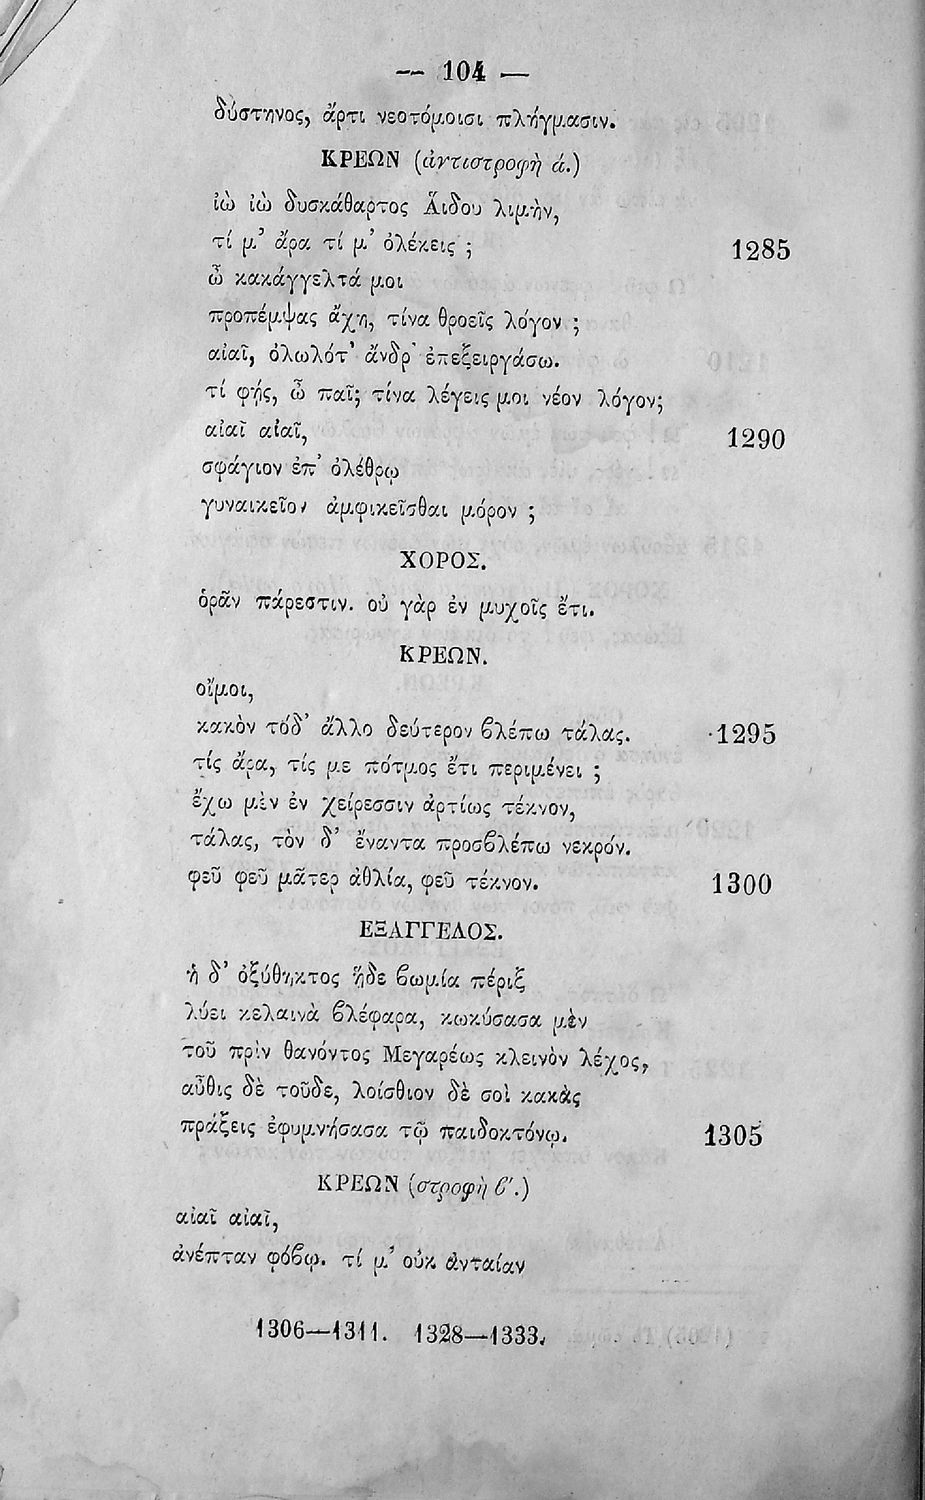 — 104 —
δύστηνος, ἄρτι νεοτόμοισι πλήγμασιν.
ΚΡΕΩΝ (ἀντιστροφὴ ά.)
ἰὼ ἰὼ δυσκάθαρτος Ἅιδου λιμὴν,
τί μ’ ἄρα τί μ’ ὀλέκεις ; 1285
ὦ κακάγγελτά μοι
προπέμψας ἄχη, τίνα θροεῖς λόγον ;
αἰαῖ, ὀλωλότ’ ἄνδρ’ ἐπεξειργάσω.
τί φῄς, ὦ παῖ; τίνα λέγεις μοι νέον λόγον;
αἰαῖ αἰαῖ, 1290
σφάγιον ἐπ’ ὀλέθρῳ
γυναικεῖον ἀμφικεῖσθαι μόρον ;
ΧΟΡΟΣ.
ὁρᾶν πάρεστιν. οὐ γὰρ ἐν μυχοῖς ἔτι.
ΚΡΕΩΝ.
οἴμοι,
κακὸν τόδ’ ἄλλο δεύτερον ϐλέπω τάλας. 1295
τίς ἄρα, τίς με πότμος ἔτι περιμένει ;
ἔχω μὲν ἐν χείρεσσιν ἀρτίως τέκνον,
τάλας, τὸν δ’ ἔναντα προσϐλέπω νεκρόν.
φεῦ φεῦ μᾶτερ ἀθλία, φεῦ τέκνον. 1300
ΕΞΑΓΓΕΛΟΣ.
ἡ δ’ ὀξύθηκτος ἥδε ϐωμία πέριξ
λύει κελαινὰ ϐλέφαρα, κωκύσασα μὲν
τοῦ πρὶν θανόντος Μεγαρέως κλεινὸν λέχος,
αὖθις δὲ τοῦδε, λοίσθιον δὲ σοὶ κακὰς
πράξεις ἐφυμνήσασα τῷ παιδοκτόνῳ. 1305
ΚΡΕΩΝ (στροφὴ ϐ’.)
αἰαῖ αἰαῖ,
ἀνέπταν φόϐῳ. τί μ’ οὐκ ἀνταίαν
1306—1311. 1328—1333.